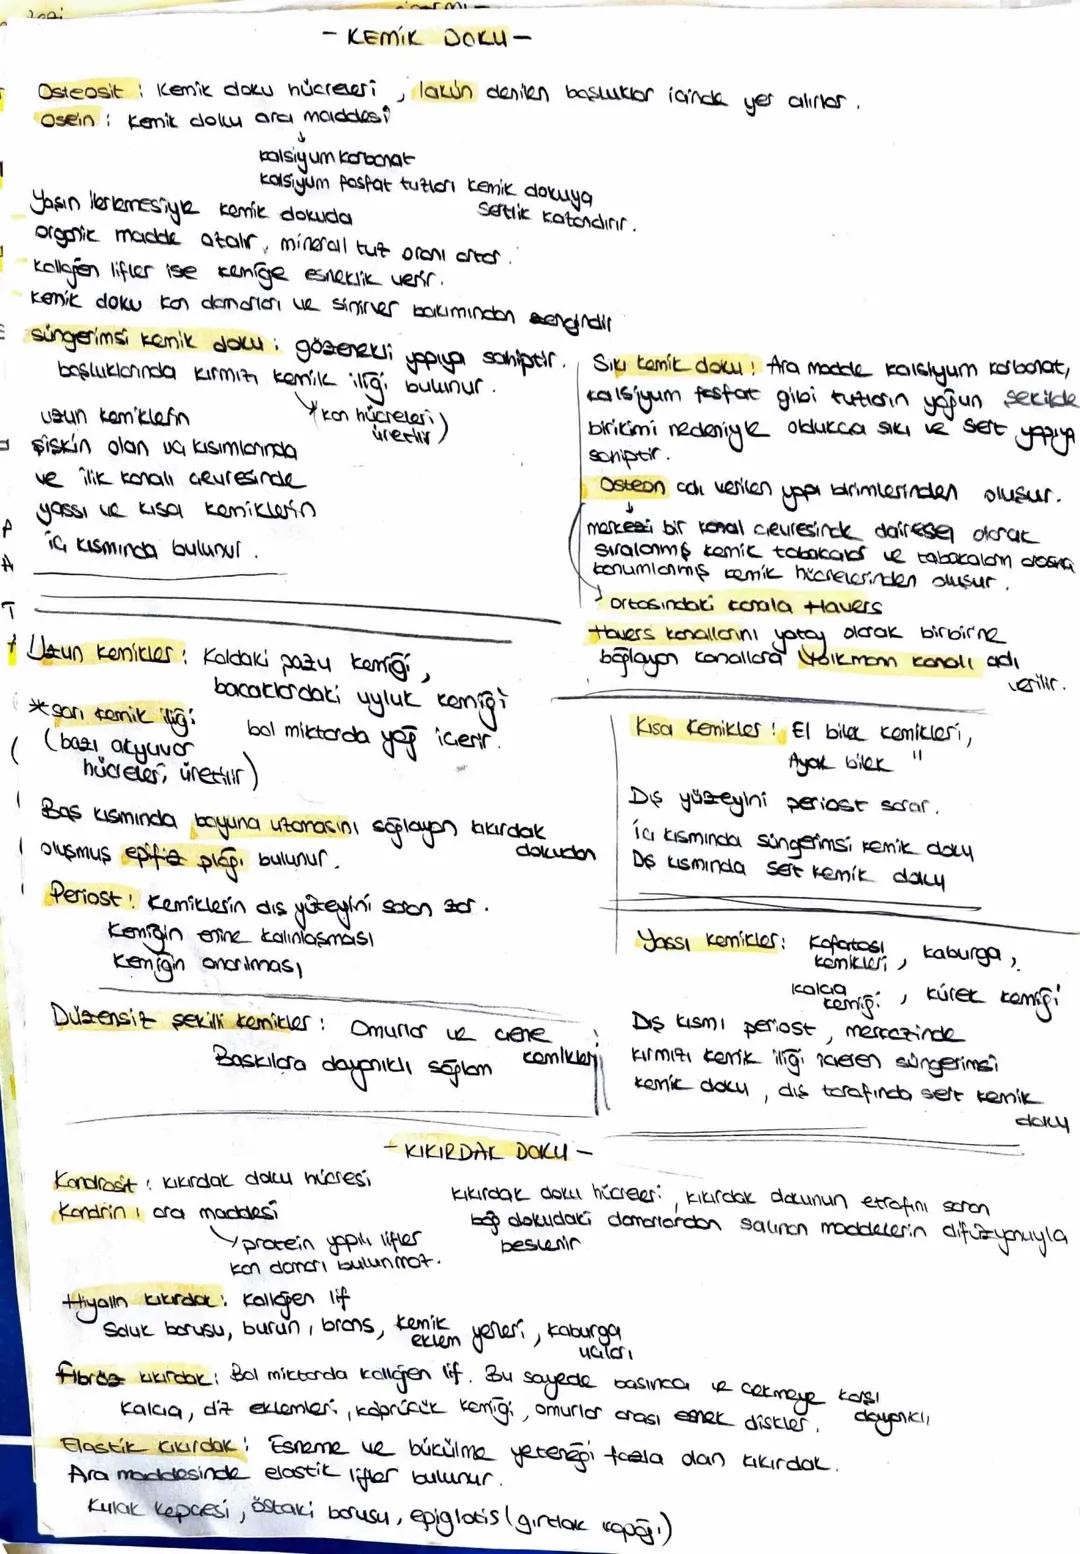 - KEMİK DOKU -
Osteosit : Kemik doku hücreleri , lakün denilen boşluklar içinde yer alırlar .
Osein : Kemik doku ara maddesi
kalsiyum karbonat
kalsiyum fosfat tuzları kemik dokuya
sertlik katandırır .
Yaşın ilerlemesiyle kemik dokuda
organik madde azalır , minerall tuz oranı artar .
Kollajen lifler ise kemiğe esneklik verir .
Kemik doku kan damarları ve sinirler bakımından zengindir
süngerimsi kemik doku : gözenekli yapıya sahiptir .
boşluklarında kırmızı kemik iliği bulunur .
* kan hücreleri
üretilir )
uzun kemiklerin
şişkin olan uç kısımlarında
ve ilik kanalı çevresinde
yassı ve kısa kemiklerin
iç kısmında bulunur .
Sıkı kemik doku : Ara madde kalsiyum karbonat,
kalsiyum fosfat gibi tuzların yoğun şekilde
birikimi nedeniyle oldukça sıkı ve sert yapıya
sahiptir .
Osteon adı verilen yapı birimlerinden oluşur .
merkezi bir kanal çevresinde dairesel olarak
sıralanmış kemik tabakaları ve tabakaların arasına
konumlanmış kemik hücrelerinden oluşur .
ortasındaki kanala Havers
Havers kanallarını yatay olarak birbirine
bağlayan kanallara Volkmann kanalı adı
verilir .
Uzun kemikler : Koldaki pazu kemiği ,
bacaklardaki uyluk kemiği
* sarı kemik iliği : bol miktarda yağ içerir .
( bazı akyuvar
hücreleri üretilir )
Baş kısmında boyuna uzamasını sağlayan kıkırdak
dokudan
oluşmuş epifiz plağı bulunur .
Periost : Kemiklerin dış yüzeyini saran zar .
Kemiğin enine kalınlaşması
Kemiğin onarılması
Düzensiz şekilli kemikler : Omurlar ve çene
kemikleri
Baskılara dayanıklı sağlam
Kısa kemikler : El bilek kemikleri ,
Ayak bilek "
Dış yüzeyini periost sarar .
iç kısmında süngerimsi kemik doku
Dış kısmında sert kemik doku
Yassı kemikler : Kafatası
kemikleri , kaburga ,
kalça
kemiği , kürek kemiği
Dış kısmı periost , merkezinde
kırmızı kemik iliği içeren süngerimsi
kemik doku , dış tarafında sert kemik
doku
- KIKIRDAK DOKU -
Kondrosit : kıkırdak doku hücresi
Kondrin : ara maddesi
protein yapılı lifler
kan damarı bulunmaz .
kıkırdak doku hücreleri , kıkırdak dokunun etrafını saran
bağ dokudaki damarlardan salınan maddelerin difüzyonuyla
beslenir
Hiyalin kıkırdak : Kollajen lif
Soluk borusu, burun , bronş, kemik
eklem yerleri , kaburga
uçları
Fibröz kıkırdak : Bol miktarda kollajen lif . Bu sayede basınca ve çekmeye karşı
dayanıklı
Kalça , diz eklemleri , köprücük kemiği , omurlar arası esnek diskler .
Elastik kıkırdak : Esneme ve bükülme yeteneği fazla olan kıkırdak .
Ara maddesinde elastik lifler bulunur .
Kulak kepçesi , östaki borusu , epiglotis ( gırtlak kapağı )